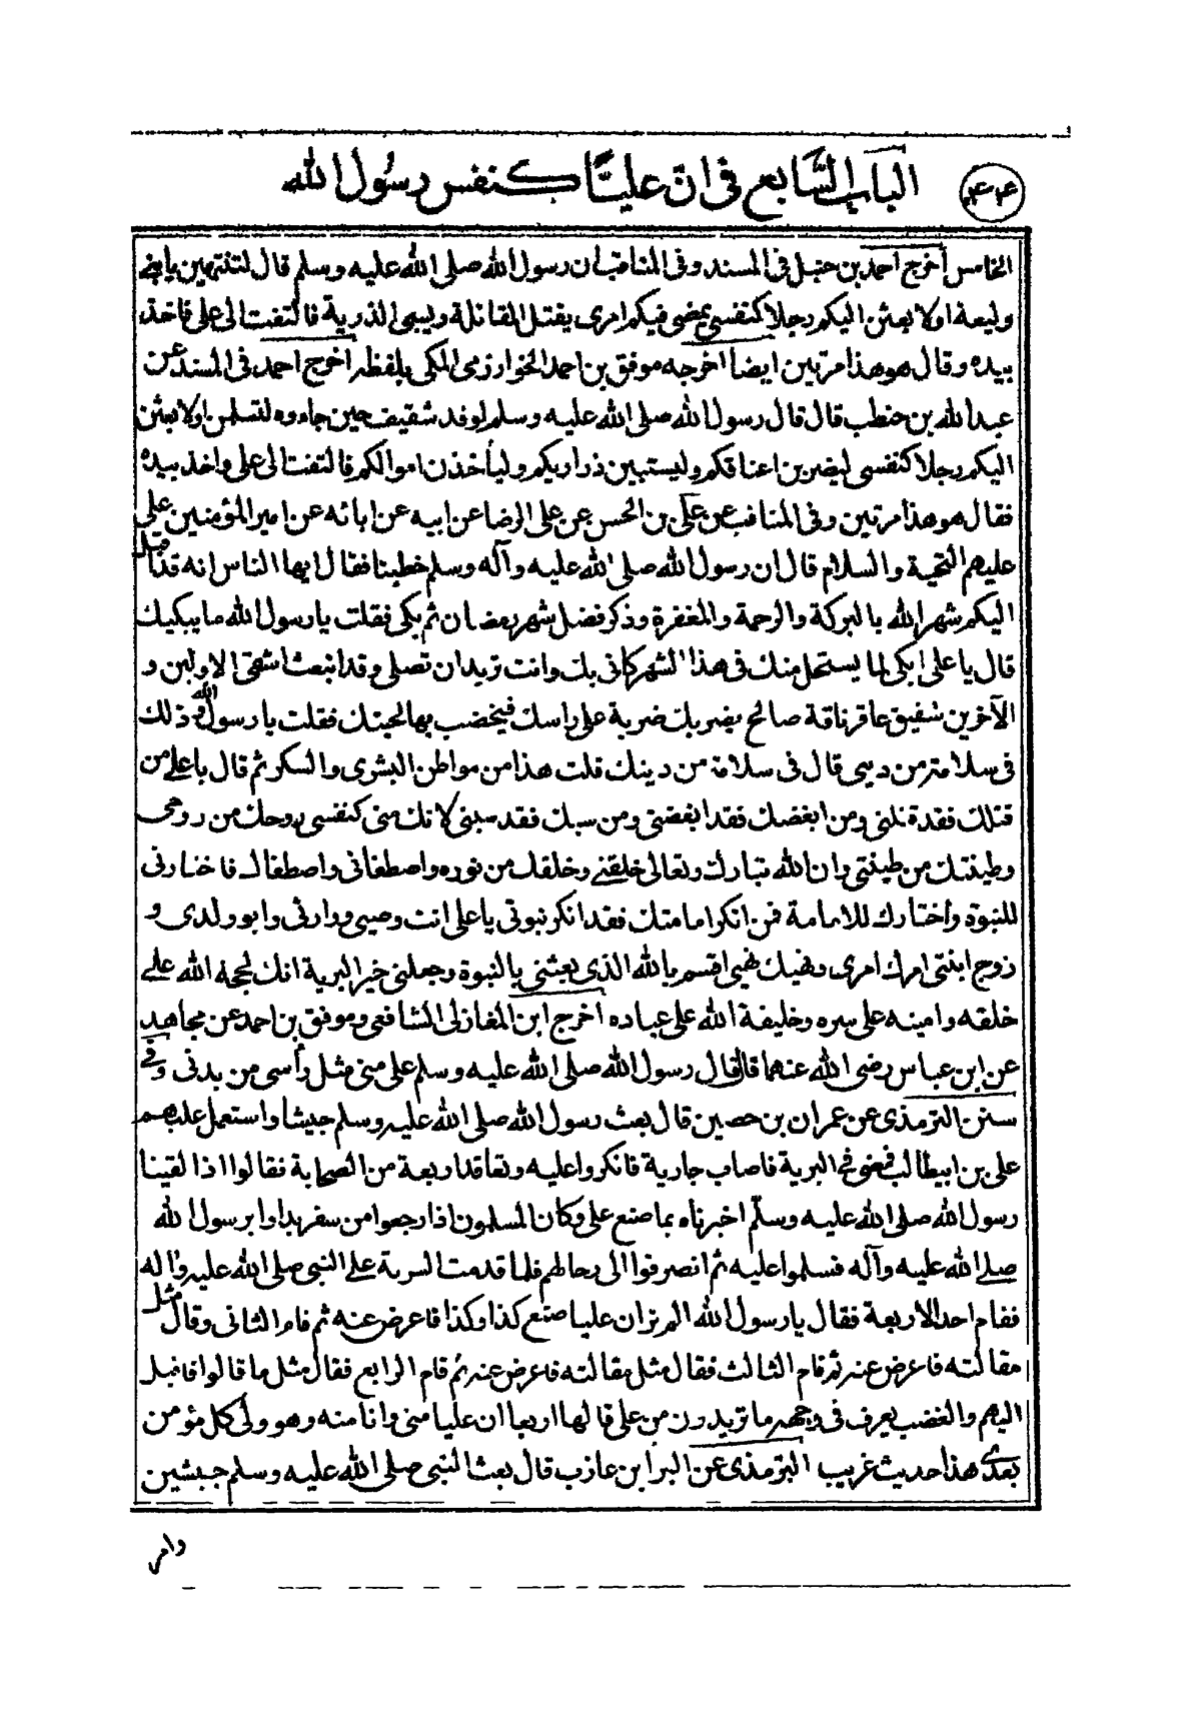 الباب السابع فى ان عليا كنفس رسول الله
الخامس اخرج احمد بن حنبل فى المسند وفى المناقب ان رسول الله صلى الله عليه وسلم قال لتنتهين يا بنى
وليعة او لابعثن اليكم رجلا كنفسى يمضى فيكم امرى يقتل المقاتلة ويسبى الذرية فالتفت الى على فاخذ
بيده وقال هو هذا مرتين ايضا اخرجه موفق بن احمد الخوارزمى المكى بلفظه اخرج احمد فى المسند عن
عبد الله بن حنطب قال قال رسول الله صلى الله عليه وسلم لوفد شقيف حين جاءوه لتسلمن او لابعثن
اليكم رجلا كنفسى ليضربن اعناقكم وليستبين ذراريكم وليأخذن اموالكم فالتفت الى على واخذ بيده
فقال هو هذا مرتين وفى المناقب عن على بن الحسن عن على الرضا عن ابيه عن ابائه عن امير المؤمنين على
عليهم التحية والسلام قال ان رسول الله صلى الله عليه وآله وسلم خطبنا فقال ايها الناس انه قد اقبل
اليكم شهر الله بالبركة والرحمة والمغفرة وذكر فضل شهر رمضان ثم بكى فقلت يا رسول الله ما يبكيك
قال يا على ابكى لما يستحل منك فى هذا الشهر كانى بك وانت تريد ان تصلى وقد انبعث اشقى الاولين و
الآخرين شقيق عاقر ناقة صالح يضربك ضربة على راسك فيخضب بها لحيتك فقلت يا رسول الله وذلك
فى سلامة من دينى قال فى سلامة من دينك قلت هذا من مواطن البشرى والشكر ثم قال يا على من
قتلك فقد قتلنى ومن ابغضك فقد ابغضنى ومن سبك فقد سبنى لانك منى كنفسى روحك من روحى
وطينتك من طينتى وان الله تبارك وتعالى خلقنى وخلقك من نوره واصطفانى واصطفاك فاختارنى
للنبوة واختارك للامامة فمن انكر امامتك فقد انكر نبوتى يا على انت وصيى ووارثى وابو ولدى و
زوج ابنتى امرك امرى ونهيك نهيى اقسم بالله الذى بعثنى بالنبوة وجعلنى خير البرية انك لحجة الله على
خلقه وامينه على سره وخليفة الله على عباده اخرج ابن المغازلى الشافعى وموفق بن احمد عن مجاهد
عن ابن عباس رضى الله عنهما قال قال رسول الله صلى الله عليه وسلم على منى مثل رأسى من بدنى وفى
سنن الترمذى عن عمران بن حصين قال بعث رسول الله صلى الله عليه وسلم جيشا واستعمل عليهم
على بن ابيطالب فمضى فى البرية فاصاب جارية فانكروا عليه وتعاقد اربعة من الصحابة فقالوا اذا لقينا
رسول الله صلى الله عليه وسلم اخبرناه بما صنع على وكان المسلمون اذا رجعوا من سفر بداوا برسول الله
صلى الله عليه وآله فسلموا عليه ثم انصرفوا الى رحالهم فلما قدمت السرية على النبى صلى الله عليه واله
فقام احد الاربعة فقال يا رسول الله الم تر ان عليا صنع كذا وكذا فاعرض عنه ثم قام الثانى وقال مثل
مقالته فاعرض عنه ثم قام الثالث فقال مثل مقالته فاعرض عنه ثم قام الرابع فقال مثل ما قالوا فاقبل
اليهم والغضب يعرف فى وجهه ما تريدون من على قالها اربعا ان عليا منى وانا منه وهو ولى كل مؤمن
بعدى هذا حديث غريب الترمذى عن البرا بن عازب قال بعث النبى صلى الله عليه وسلم جيشين
وامر